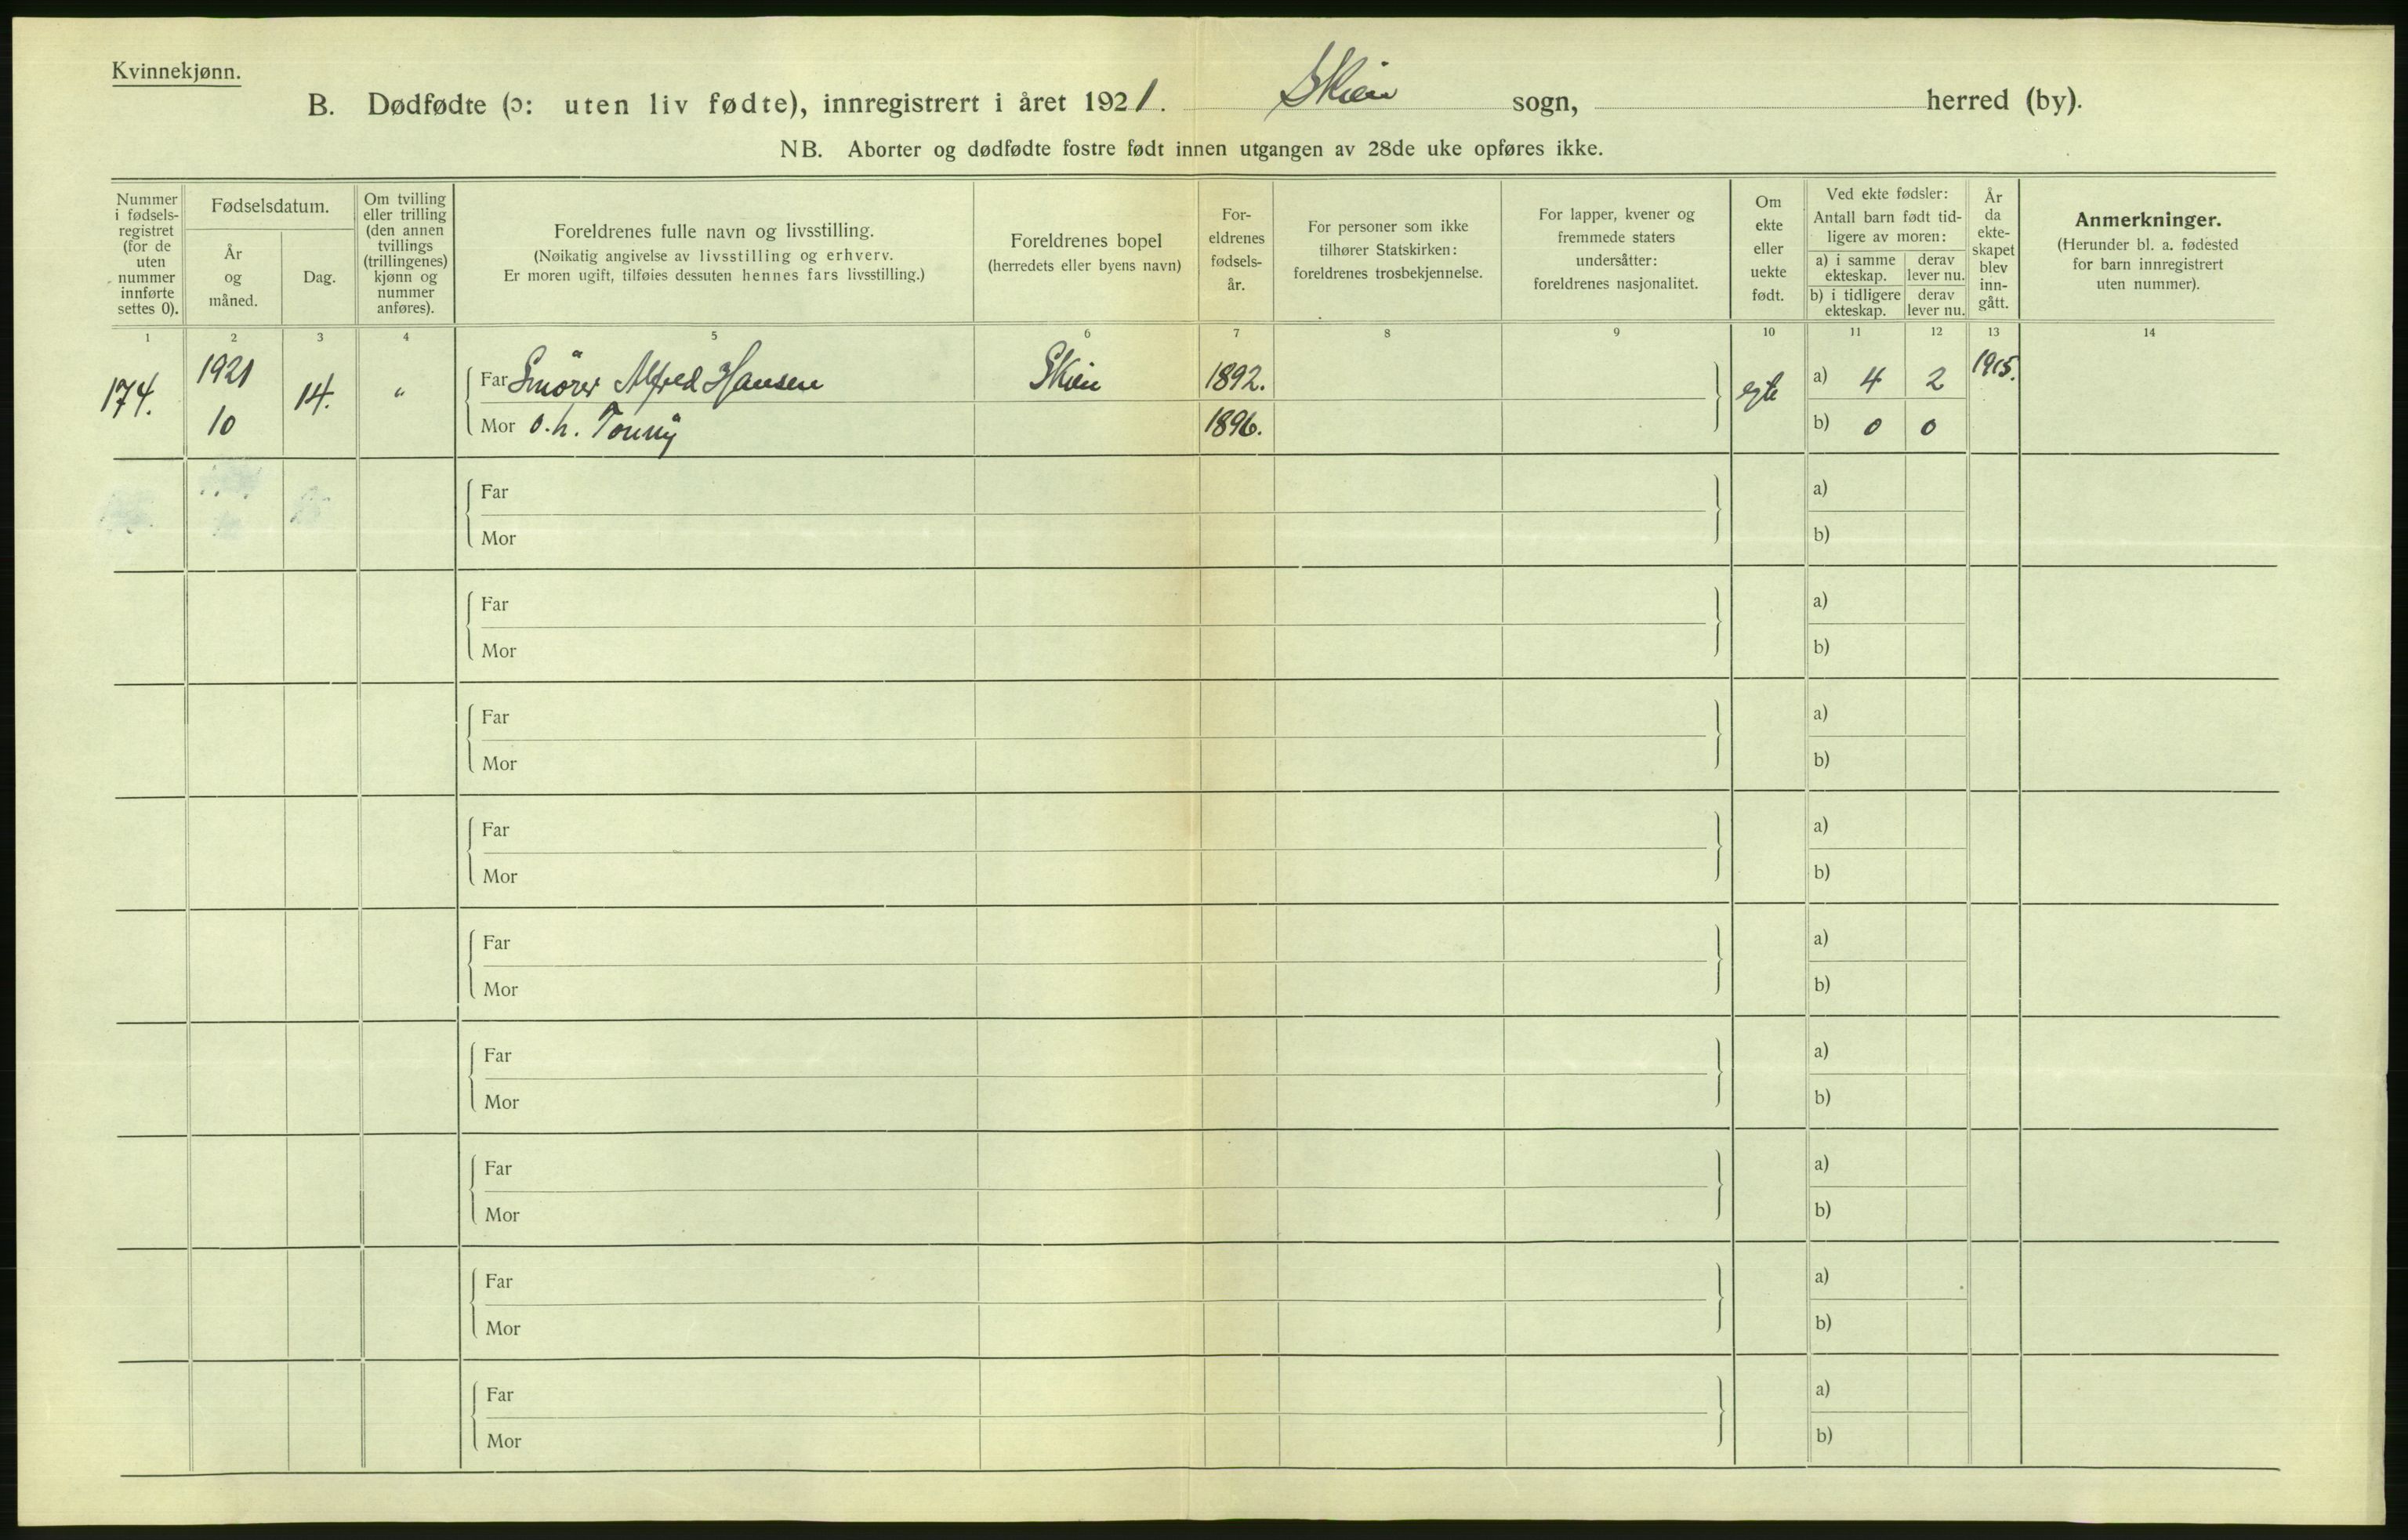 Kvinnekjønn.
B. Dødfødte (ɔ: uten liv fødte), innregistrert i året 1921. Skien sogn, herred (by).
NB. Aborter og dødfødte fostre født innen utgangen av 28de uke opføres ikke.
Nummer i fødsels-registret (for de uten nummer innførte settes 0).
Fødselsdatum.
År og måned.
Dag.
Om tvilling eller trilling (den annen tvillings (trillingenes) kjønn og nummer anføres).
Foreldrenes fulle navn og livsstilling.
(Nøikatig angivelse av livsstilling og erhverv.
Er moren ugift, tilføies dessuten hennes fars livsstilling.)
Foreldrenes bopel
(herredets eller byens navn)
For-eldrenes fødsels-år.
For personer som ikke tilhører Statskirken: foreldrenes trosbekjennelse.
For lapper, kvener og fremmede staters undersåtter: foreldrenes nasjonalitet.
Om ekte eller uekte født.
Ved ekte fødsler:
Antall barn født tid-ligere av moren:
a) i samme ekteskap.
derav lever nu.
b) i tidligere ekteskap.
derav lever nu.
År da ekte-skapet blev inn-gått.
Anmerkninger.
(Herunder bl. a. fødested for barn innregistrert uten nummer).
1 2 3 4 5 6 7 8 9 10 11 12 13 14
174. 1921 14. " Far Smører Alfred Hansen Skien 1892. egte a) 4 2 1915.
10 Mor o. h. Tonny 1896. b) 0 0
Far a)
Mor b)
Far a)
Mor b)
Far a)
Mor b)
Far a)
Mor b)
Far a)
Mor b)
Far a)
Mor b)
Far a)
Mor b)
Far a)
Mor b)
Far a)
Mor b)